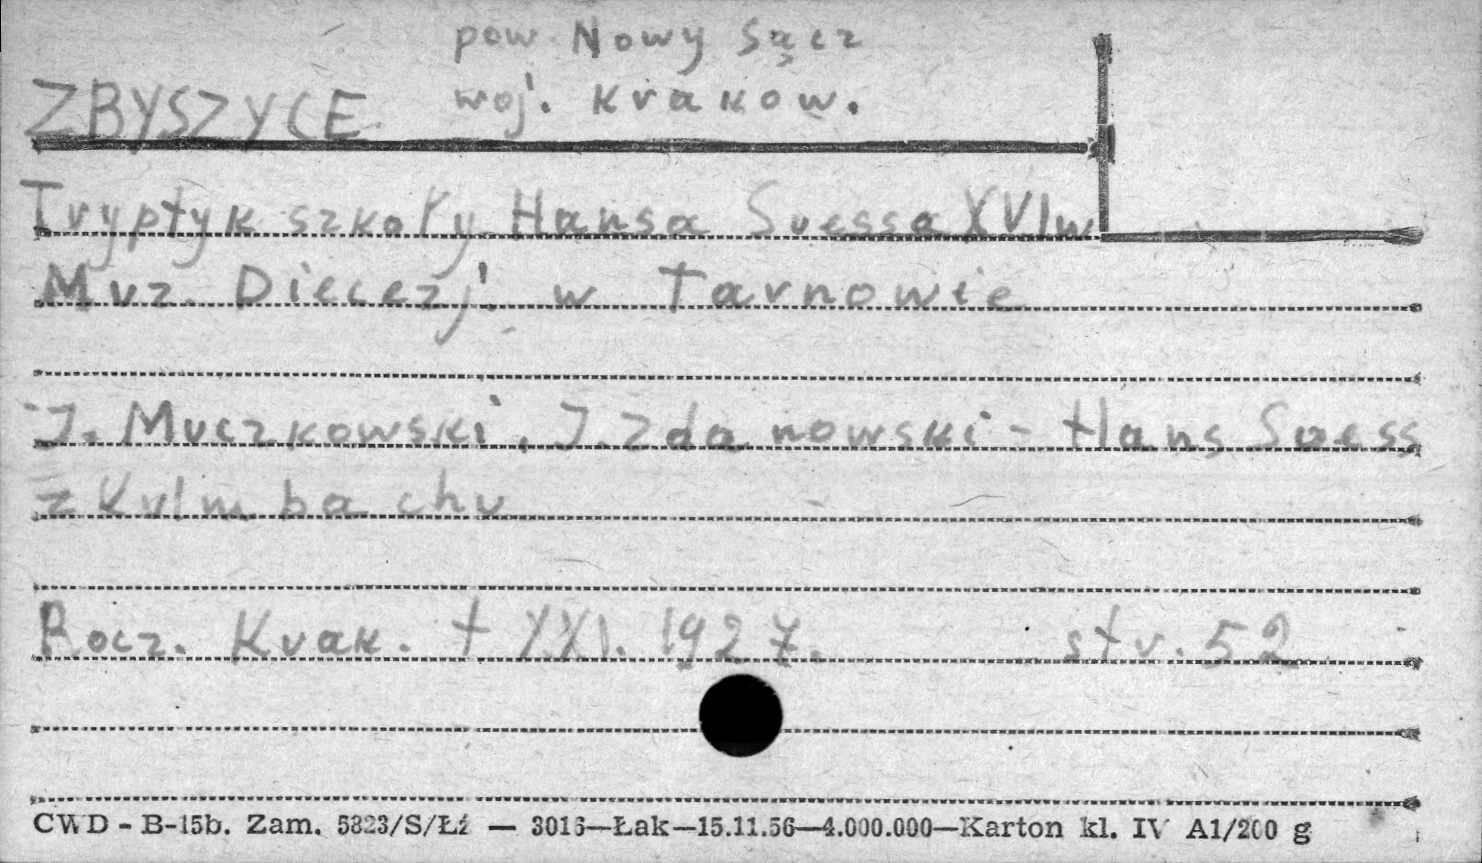 pow. Nowy Sącz
ZBYSZYCE woj. Krakow.
Tryptyk szkoły Hansa Suessa XVI w
Muz. Diecezj. w Tarnowie
J. Muczkowski, J. Zdanowski - Hans Suess
z Kulmbachu
Rocz. Krak. t XXI. 1927. str. 52
CWD - B-15b. Zam. 5823/S/Łź — 3016—Łak—15.11.56—4.000.000—Karton kl. IV A1/200 g